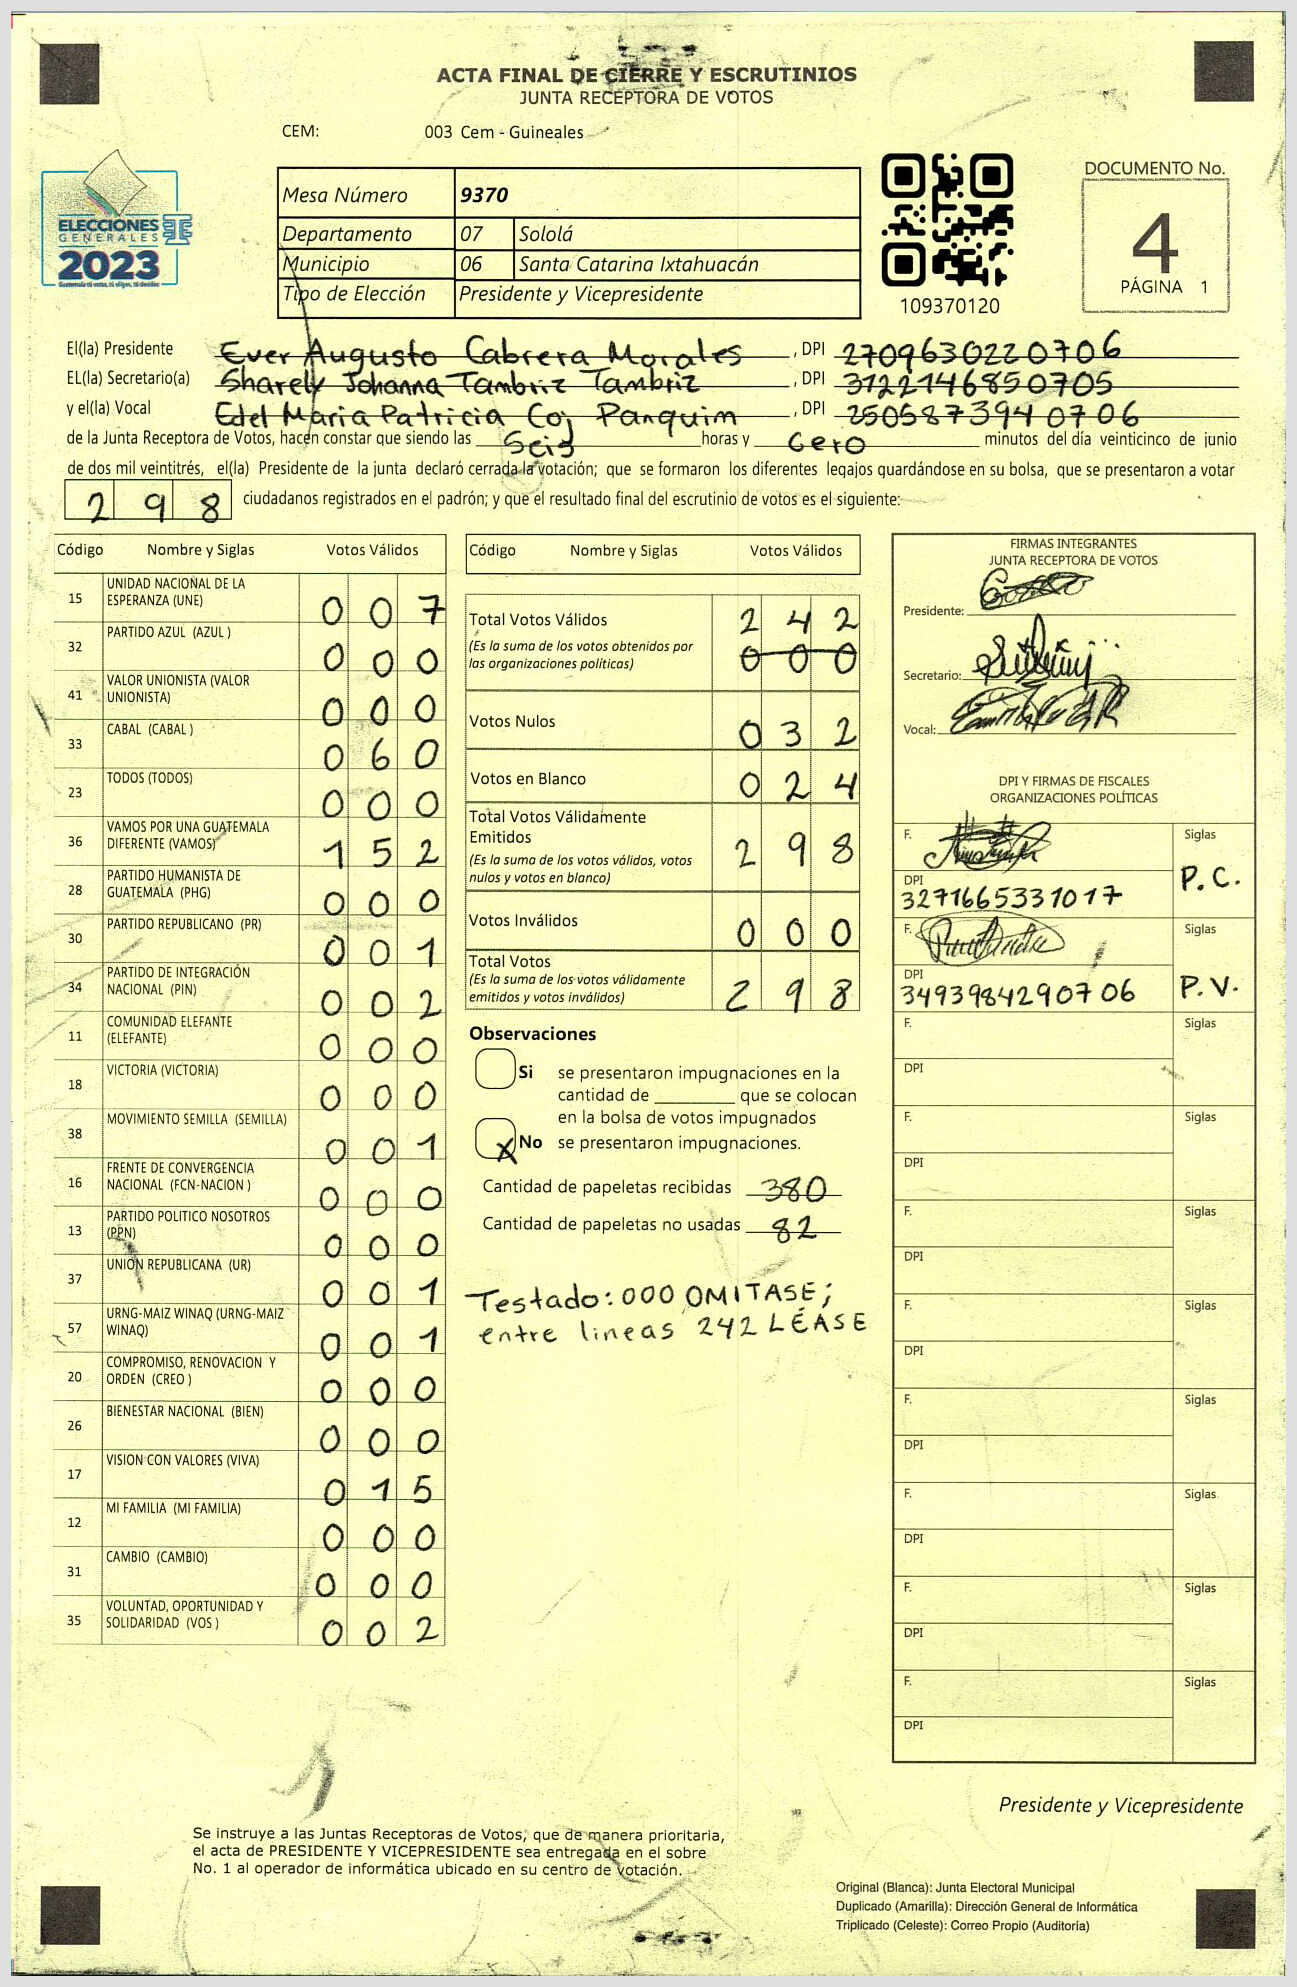 ACTA FINAL DE CIERRE Y ESCRUTINIOS
JUNTA RECEPTORA DE VOTOS
CEM: 003 Cem - Guineales
ELECCIONES
GENERALES
2023
Guatemala tú votas, tú eliges, tú decides
Mesa Número 9370
Departamento 07 Sololá
Municipio 06 Santa Catarina Ixtahuacán
Tipo de Elección Presidente y Vicepresidente
109370120
DOCUMENTO No.
4
PÁGINA 1
El(la) Presidente Ever Augusto Cabrera Morales, DPI 2709630220706
EL(la) Secretario(a) Sharely Johanna Tambriz Tambriz, DPI 3122146850705
y el(la) Vocal Edel Maria Patricia Coj Panquim, DPI 2505873940706
de la Junta Receptora de Votos, hacen constar que siendo las Seis horas y Cero minutos del día veinticinco de junio
de dos mil veintitrés, el(la) Presidente de la junta declaró cerrada la votación; que se formaron los diferentes legajos guardándose en su bolsa, que se presentaron a votar
298 ciudadanos registrados en el padrón; y que el resultado final del escrutinio de votos es el siguiente:
Código Nombre y Siglas Votos Válidos
15 UNIDAD NACIONAL DE LA
ESPERANZA (UNE) 007
32 PARTIDO AZUL (AZUL ) 000
41 VALOR UNIONISTA (VALOR
UNIONISTA) 000
33 CABAL (CABAL ) 060
23 TODOS (TODOS) 000
36 VAMOS POR UNA GUATEMALA
DIFERENTE (VAMOS) 152
28 PARTIDO HUMANISTA DE
GUATEMALA (PHG) 000
30 PARTIDO REPUBLICANO (PR) 001
34 PARTIDO DE INTEGRACIÓN
NACIONAL (PIN) 002
11 COMUNIDAD ELEFANTE
(ELEFANTE) 000
18 VICTORIA (VICTORIA) 000
38 MOVIMIENTO SEMILLA (SEMILLA) 001
16 FRENTE DE CONVERGENCIA
NACIONAL (FCN-NACION ) 000
13 PARTIDO POLITICO NOSOTROS
(PPN) 000
37 UNION REPUBLICANA (UR) 001
57 URNG-MAIZ WINAQ (URNG-MAIZ
WINAQ) 001
20 COMPROMISO, RENOVACION Y
ORDEN (CREO ) 000
26 BIENESTAR NACIONAL (BIEN) 000
17 VISION CON VALORES (VIVA) 015
12 MI FAMILIA (MI FAMILIA) 000
31 CAMBIO (CAMBIO) 000
35 VOLUNTAD, OPORTUNIDAD Y
SOLIDARIDAD (VOS ) 002
Código Nombre y Siglas Votos Válidos
Total Votos Válidos 242
(Es la suma de los votos obtenidos por
las organizaciones políticas) 000
Votos Nulos 032
Votos en Blanco 024
Total Votos Válidamente
Emitidos 298
(Es la suma de los votos válidos, votos
nulos y votos en blanco)
Votos Inválidos 000
Total Votos
(Es la suma de los votos válidamente
emitidos y votos inválidos) 298
Observaciones
Si se presentaron impugnaciones en la
cantidad de ________ que se colocan
en la bolsa de votos impugnados
X No se presentaron impugnaciones.
Cantidad de papeletas recibidas 380
Cantidad de papeletas no usadas 82
Testado: 000 OMITASE;
entre lineas 242 LÉASE
FIRMAS INTEGRANTES
JUNTA RECEPTORA DE VOTOS
Presidente:
Secretario:
Vocal:
DPI Y FIRMAS DE FISCALES
ORGANIZACIONES POLÍTICAS
F. Siglas
P.C.
DPI
3271665331017
F. Siglas
P.V.
DPI
3493984290706
F. Siglas
DPI
F. Siglas
DPI
F. Siglas
DPI
F. Siglas
DPI
F. Siglas
DPI
F. Siglas
DPI
F. Siglas
DPI
F. Siglas
DPI
Presidente y Vicepresidente
Se instruye a las Juntas Receptoras de Votos, que de manera prioritaria,
el acta de PRESIDENTE Y VICEPRESIDENTE sea entregada en el sobre
No. 1 al operador de informática ubicado en su centro de votación.
Original (Blanca): Junta Electoral Municipal
Duplicado (Amarilla): Dirección General de Informática
Triplicado (Celeste): Correo Propio (Auditoría)